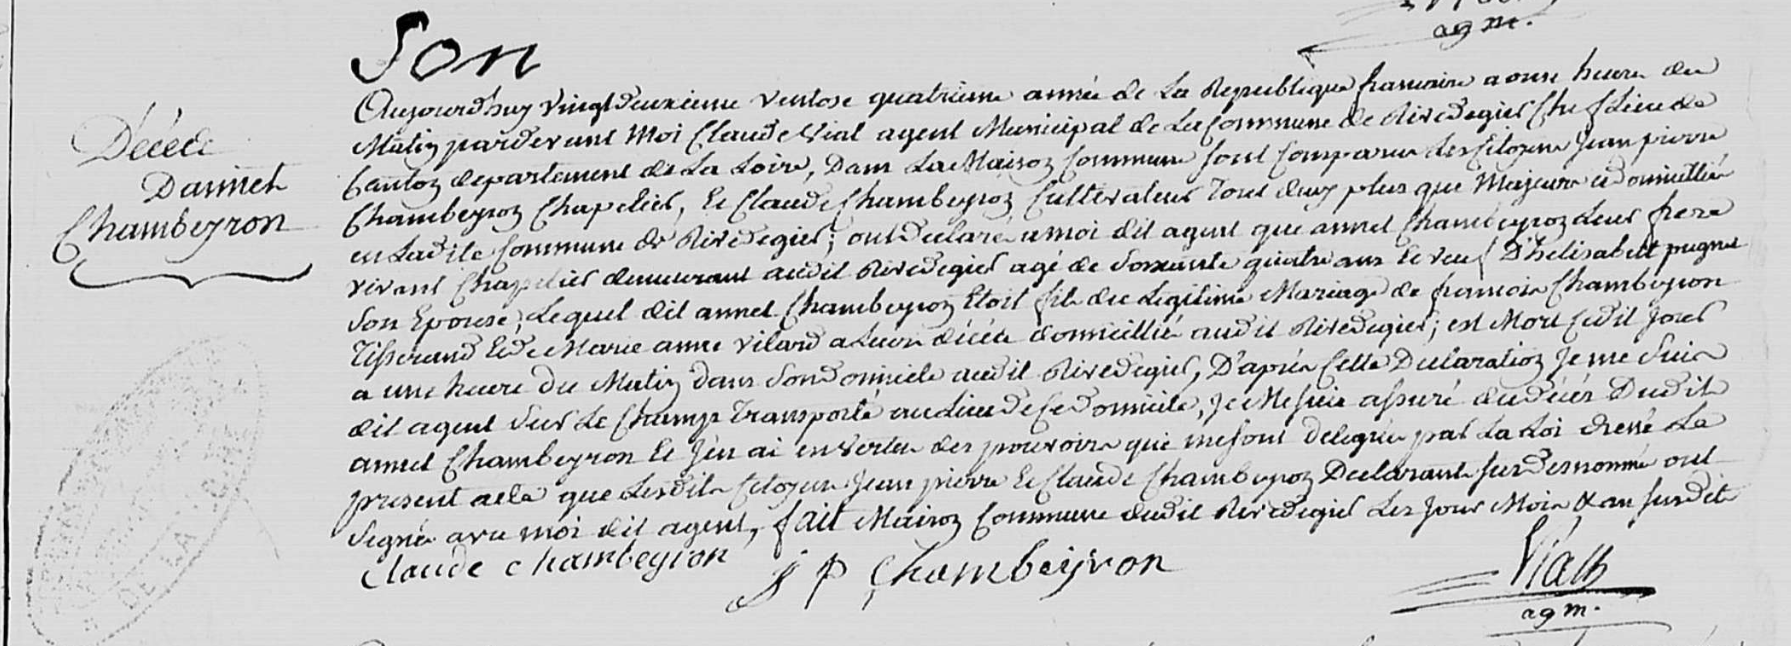 agm.
Son
Décéde
Dannet
Chambeyron
Aujourdhuy vingt deuxieme ventose quatrieme année de La Republique francaise a onse heure du
Matin pardevant Moi Claude Vial agent Municipal de La Commune de Rivedegier Chef Lieu de
Canton departement de La Loire, Dans La Maison Commune sont Comparus Les Citoyens Jean pierre
Chambeyron Chapelier, Et Claude Chambeyron Cultivateur Tout deux plus que Majeurs Domicilliés
en Ladite Commune de Rivedegier; ont declaré a moi dit agent que annet Chambeyron Leur frere
vivant Chapelier demeurant audit Rivedegier agé de Soixante quatre ans Et veuf D'helisabett pugnet
Son Epouse, Lequel dit annet Chambeyron Etoit fils du Legitime Mariage de francois Chambeyron
Tisserand Et de Marie anne vilard a Leur décéde domicillié audit Rivedegier; est Mort Cedit Jour
a une heure du Matin dans Son Domicile audit Rivedegier, D'aprés Cette Declaration Je me Suis
dit agent Sur Le Champs Transporté au Lieu de Ce domicile, Je Me suis assuré du décés Dudit
annet Chambeyron Et J'en ai en vertu des pouvoirs qui me sont delegués par La Loi dressé Le
present acte que Lesdits Citoyens Jean pierre Et Claude Chambeyron Declarants sus desnommé ont
Signé avec moi dit agent, fait Maison Commune dudit Rivedegier Les Jour Mois & an susdit
Claude Chambeyron J P Chambeyron Vialh
agm.
DE LA